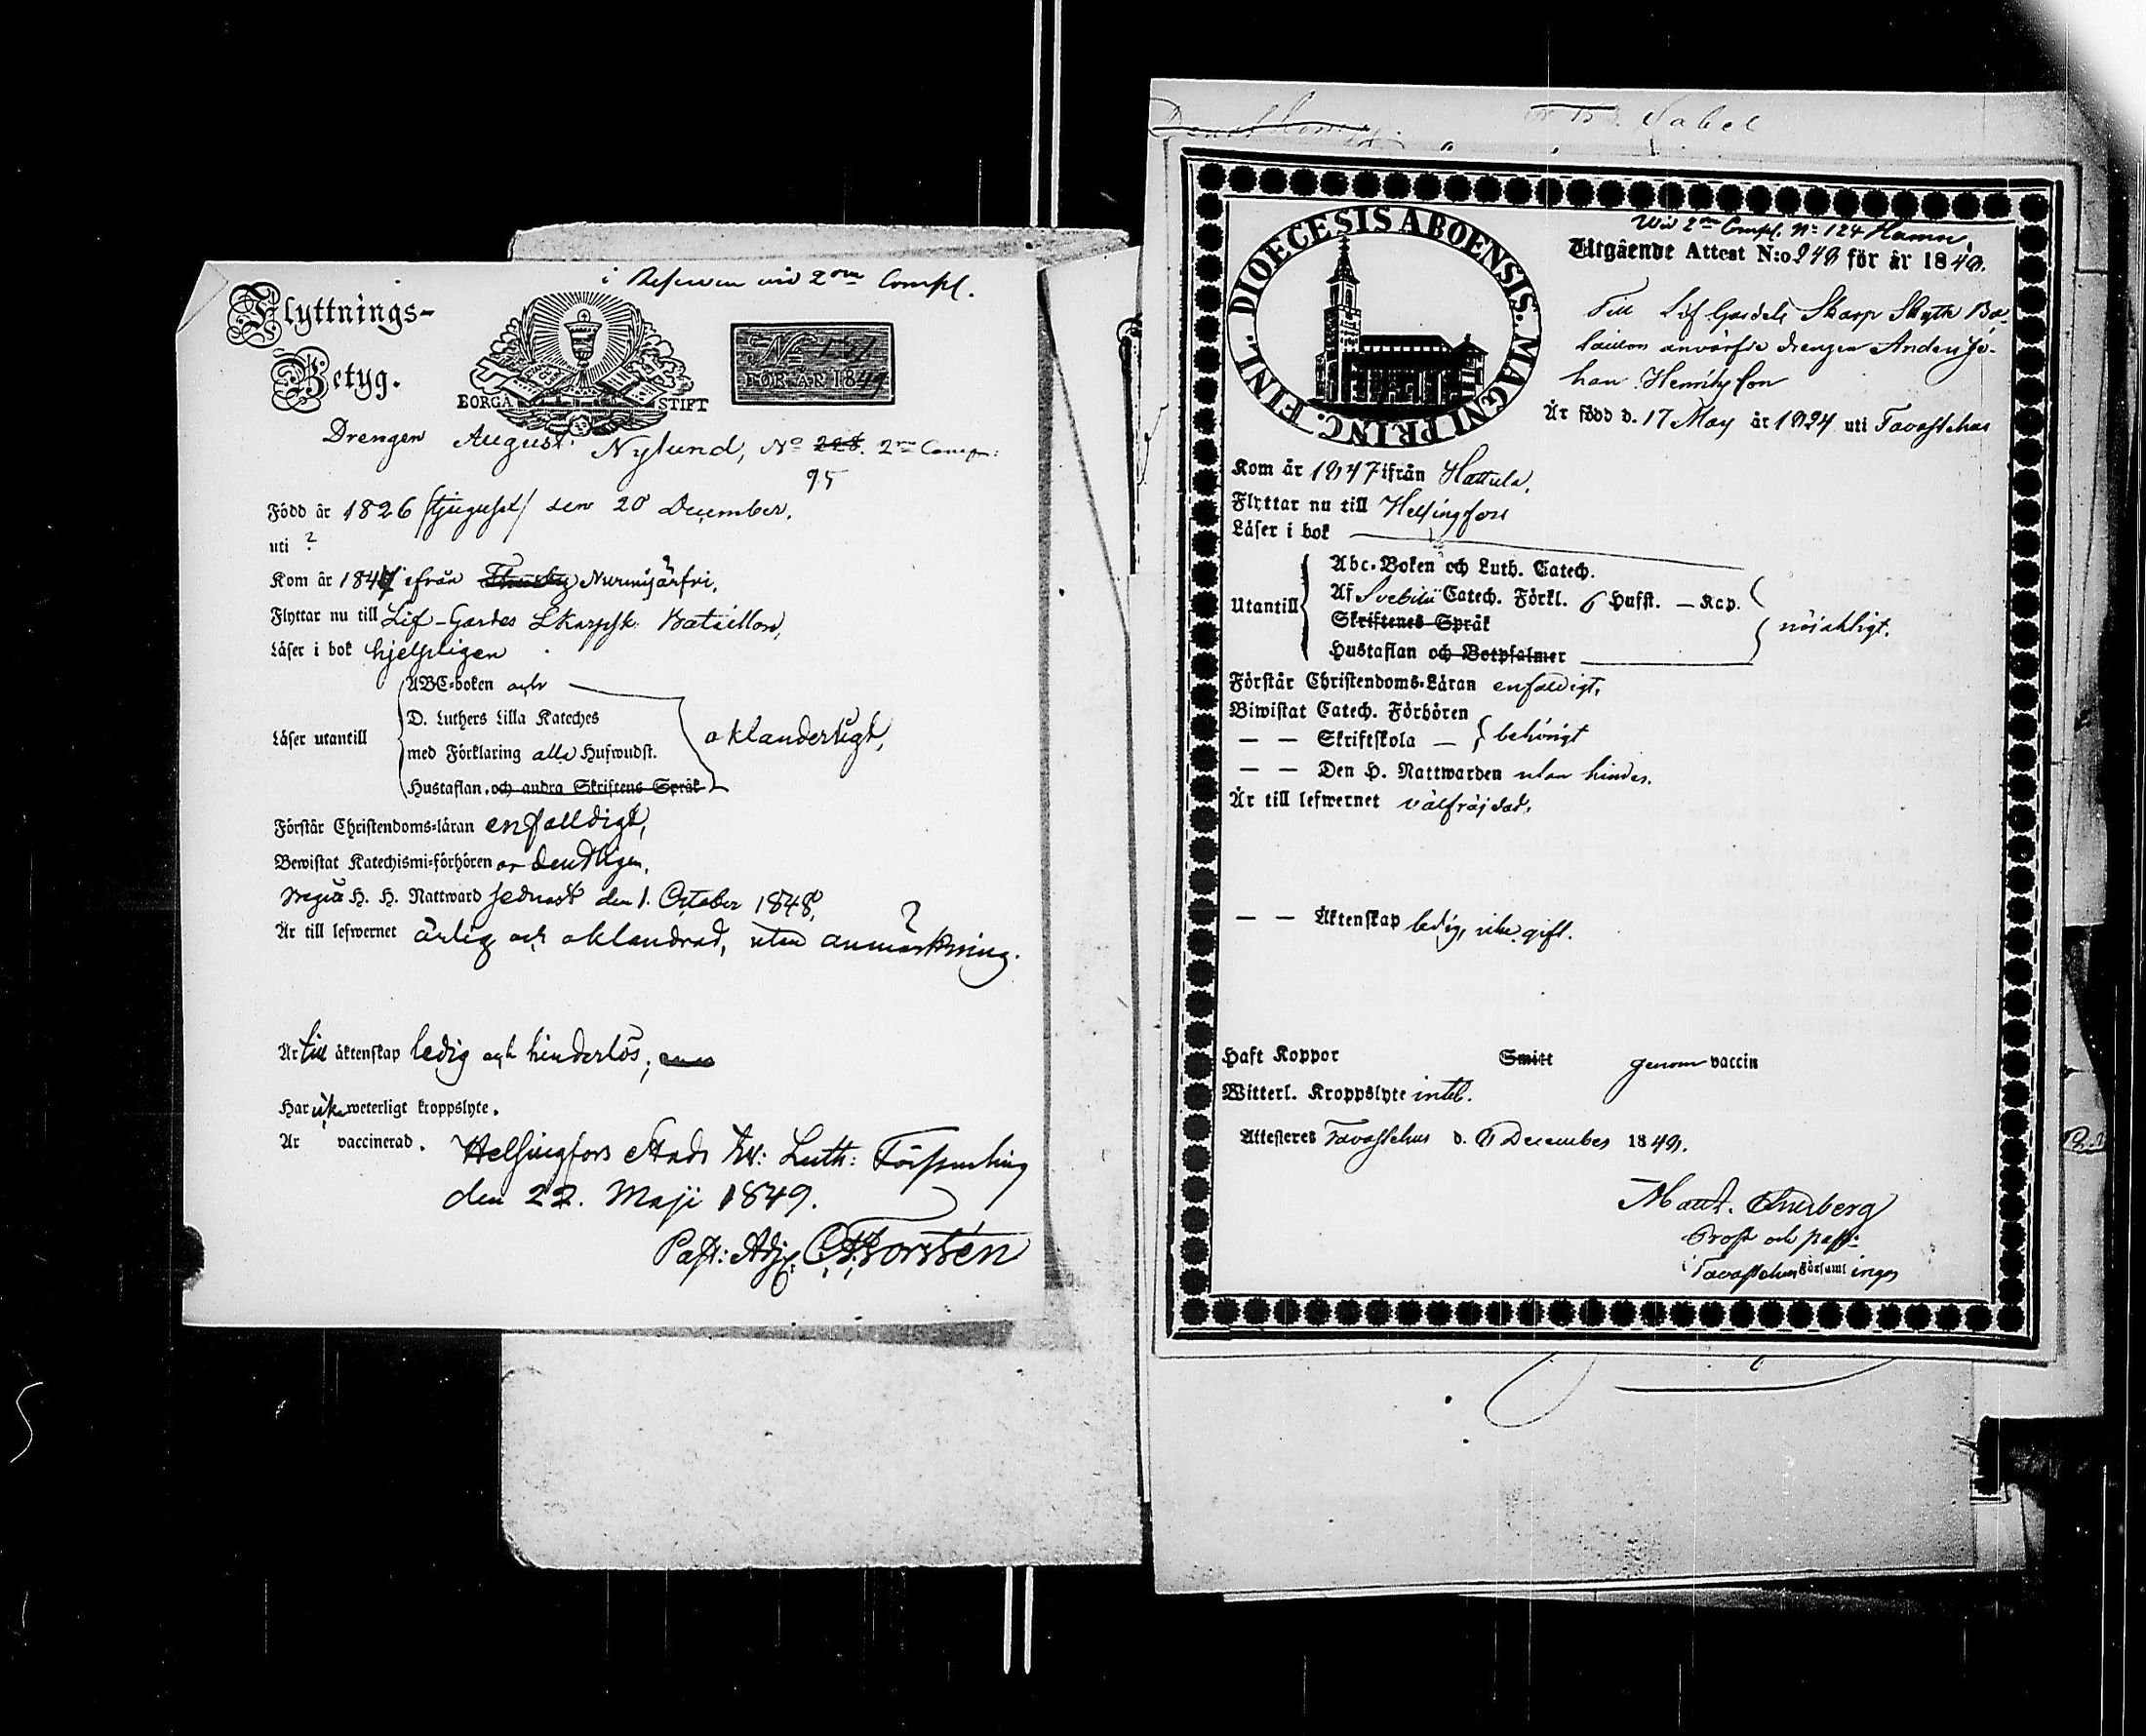 i Reserven vid 2dra Compl.
Flyttnings-
Betyg.
BORGÅ STIFT
No 151
FÖR ÅR 1849
Drengen August Nylund, No 228. 2ra Comp:
95
Född år 1826 /tjugusex/ den 20 December.
uti ?
Kom år 1847 ifrån Thusby Nurmijärfvi,
Flyttar nu till Lif-Gardes Skarpsk. Bataillon,
Läser i bok hjelpligen
Läser utantill
ABC-boken och
D. Luthers Lilla Kateches
med Förklaring alla Hufwudst.
Hustaflan, och andra Skriftens Språk
oklanderligt,
Förstår Christendoms-läran enfalldigt,
Bewistat Katechismi-förhören ordendtligen,
Begått H. H. Nattward sednast den 1. October 1848,
Är till lefwernet ärlig och oklandrad, utan anmärkning.
?
Är till äktenskap ledig och hinderlös;
Har icke weterligt kroppslyte.
Är vaccinerad.
Helsingfors Stads Ev: Luth: Församling
den 22. Maji 1849.
Past: Adj.
Sabel
DIOECESIS ABOENSIS. MAGNI PRINC. FINL.
Wid 2dra Compl. No 124 Hamn,
Utgående Attest N:o 248 för år 1849.
Till Lif Gardets Skarp Skytte Ba-
taillon anvärfde drengen Anders Jo-
han Henriksson
Är född d. 17 May år 1824 uti Tavastehus
Kom år 1847 ifrån Hattula.
Flyttar nu till Helsingfors
Läser i bok
Utantill
Abc-Boken och Luth. Catech.
Af Svebilii Catech. Förkl. 6 Hufst. — Kap.
Skriftenes Språk
Hustaflan och Botpsalmer
nöjaktligt.
Förstår Christendoms-Läran enfaldigt,
Biwistat Catech. Förhören
— — Skriftskola — behörigt
— — Den H. Nattwarden utan hinder.
Är till lefwernet välfräjdad,
— — Äktenskap ledig, icke gift.
Haft Koppor Smitt genom vaccin
Witterl. Kroppslyte intet.
Attesteres Tavastehus d. 6 December 1849.
Prost och past:
i Tavastehus Församlingar